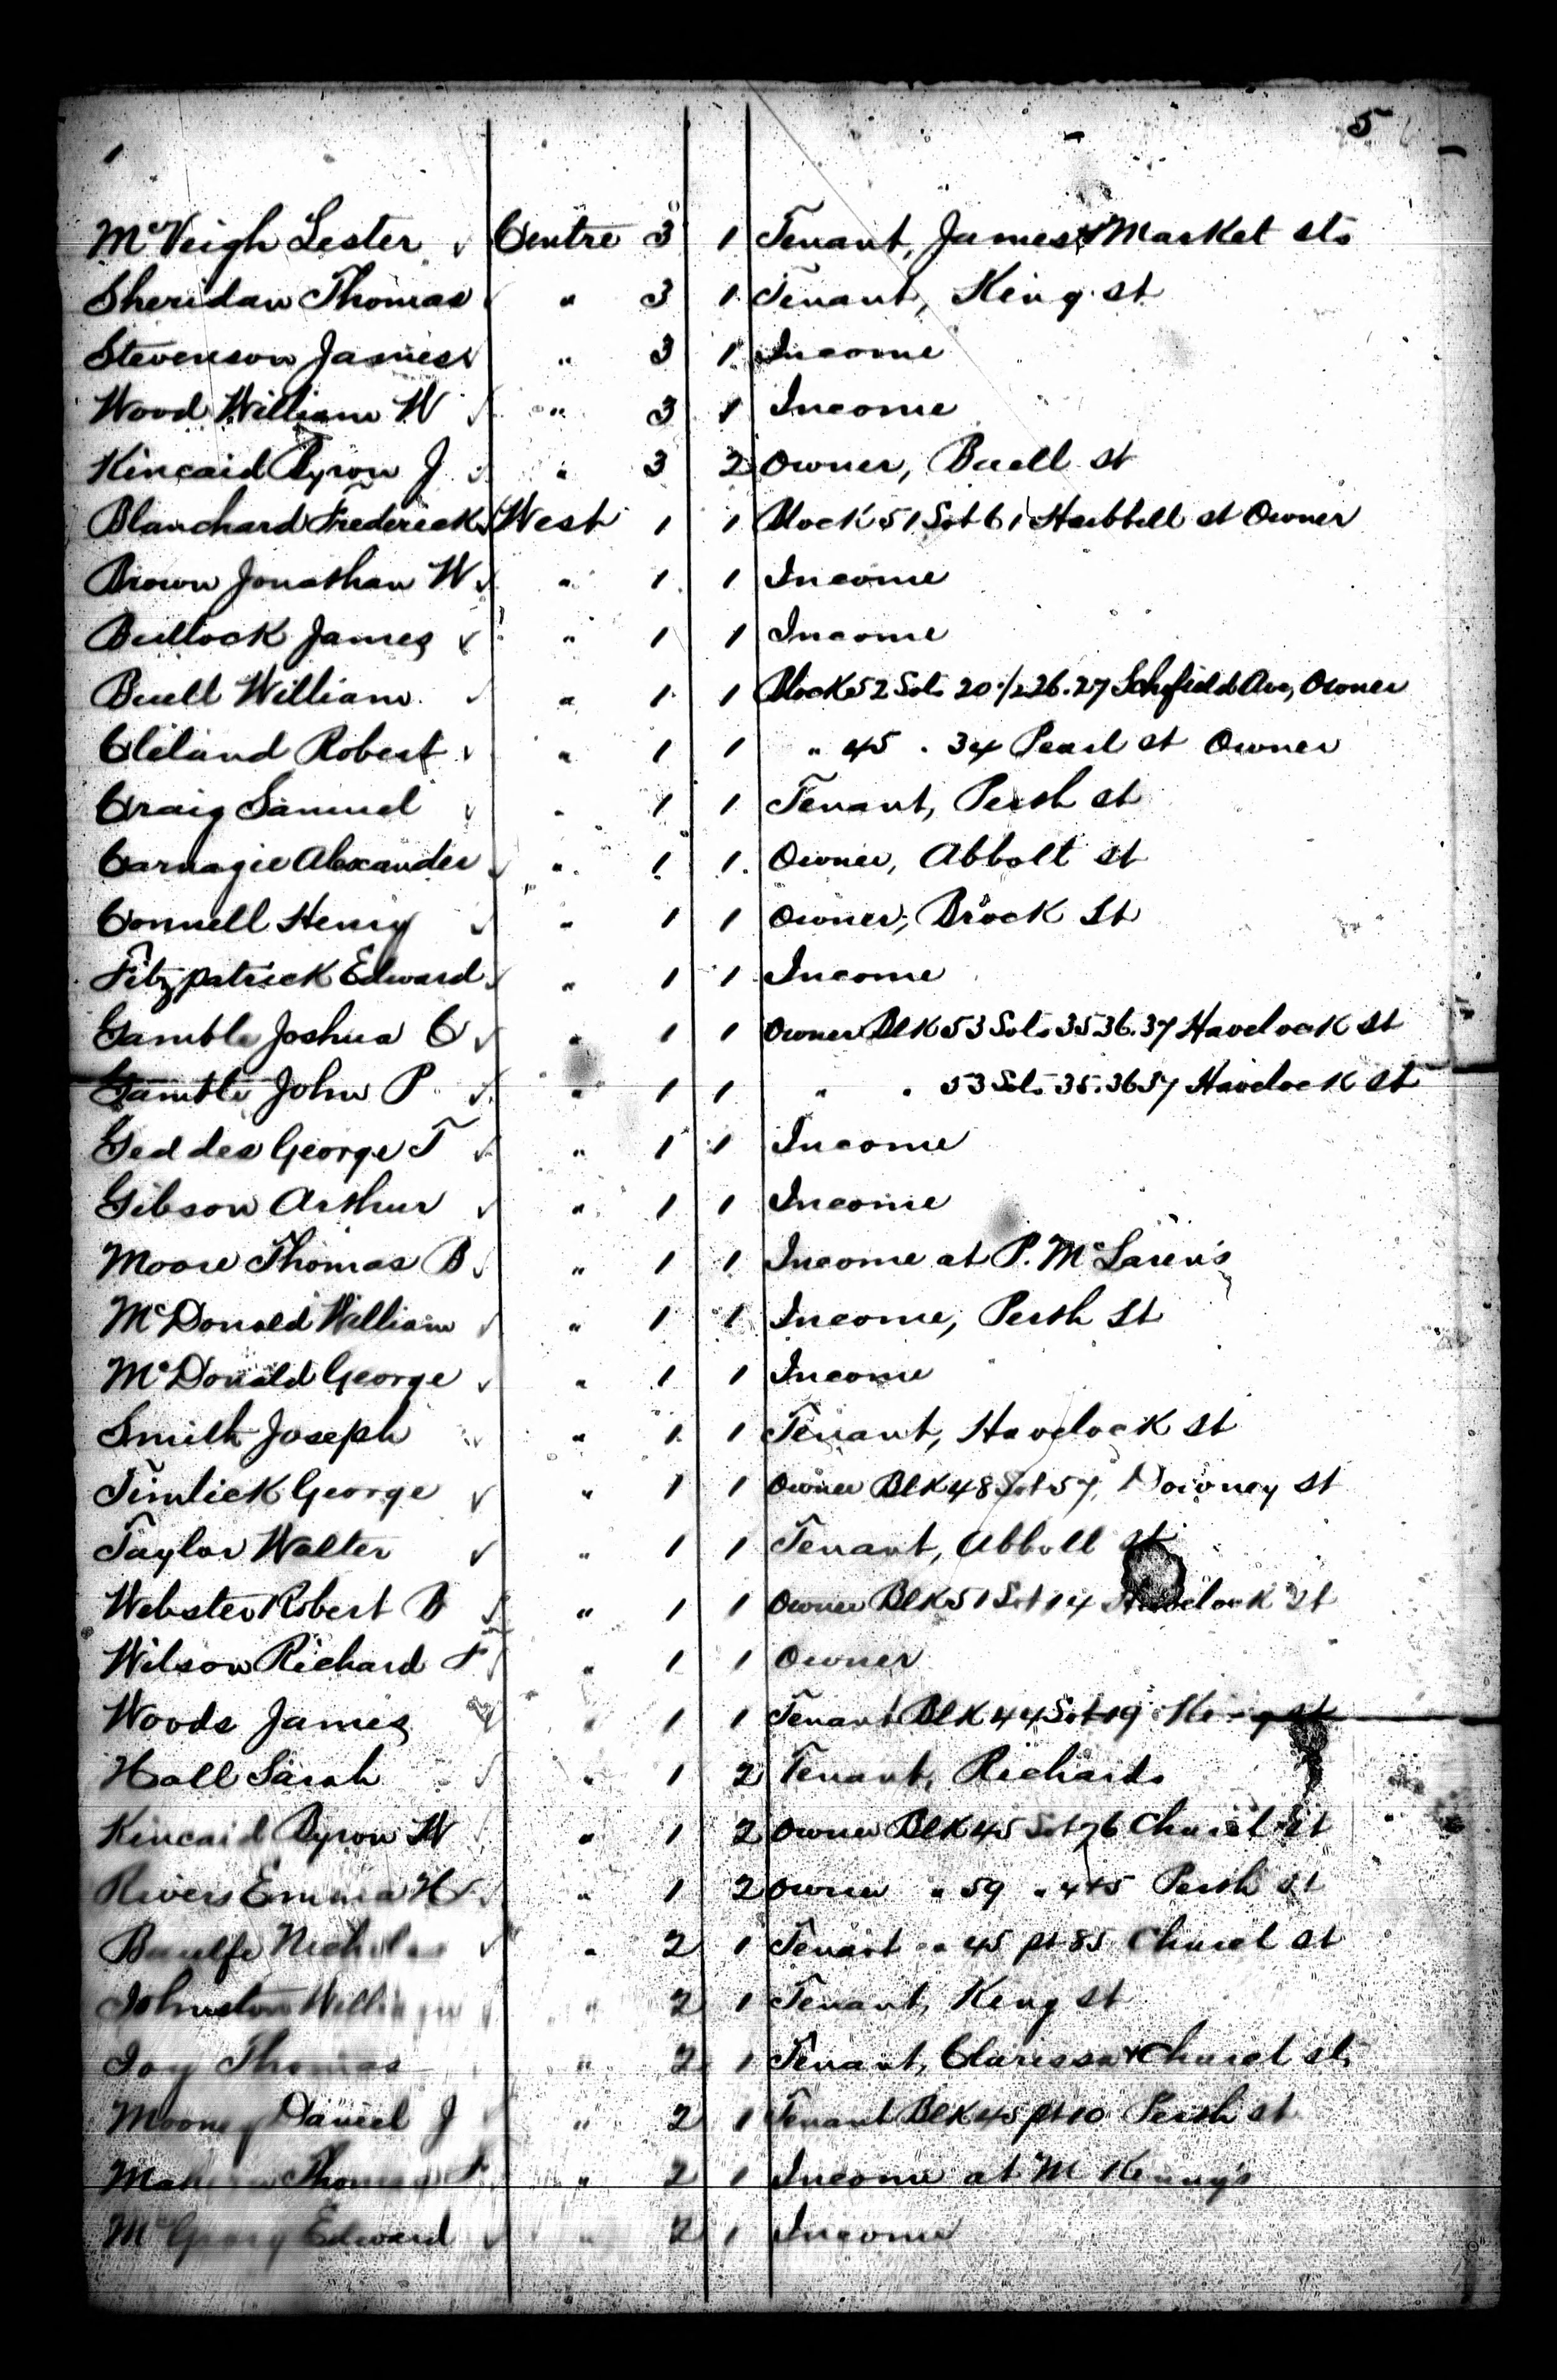 5
McVeigh Lester ✓ Centre 3 1 Tenant, James & Market sts
Sheridan Thomas ✓ " 3 1 Tenant, King st
Stevenson James ✓ " 3 1 Income
Wood William W ✓ " 3 1 Income
Kincaid Byron J ✓ " 3 2 Owner, Buell st
Blanchard Frederick ✓ West 1 1 Block 51 Lot 61 Hubbell st Owner
Brown Jonathan W ✓ " 1 1 Income
Bullock James ✓ " 1 1 Income
Buell William ✓ " 1 1 Block 52 Lots 20 1/2 26. 27 Schofield Ave, Owner
Cleland Robert ✓ " 1 1 " 45 " 34 Pearl st Owner
Craig Samuel ✓ " 1 1 Tenant, Perth st
Carnagie Alexander ✓ " 1 1 Owner, Abbott st
Connell Henry ✓ " 1 1 Owner, Brock St
Fitzpatrick Edward ✓ " 1 1 Income
Gamble Joshua C ✓ " 1 1 Owner Blk 53 Lots 35 36. 37 Havelock St
Gamble John P ✓ " 1 1 " " 53 Lots 35. 36 37 Havelock st
Geddes George T ✓ " 1 1 Income
Gibson Arthur ✓ " 1 1 Income
Moore Thomas B ✓ " 1 1 Income at P. McLaren's
McDonald William ✓ " 1 1 Income, Perth St
McDonald George ✓ " 1 1 Income
Smith Joseph ✓ " 1 1 Tenant, Havelock st
Timlick George ✓ " 1 1 Owner Blk 48 Lot 57, Downey st
Taylor Walter ✓ " 1 1 Tenant, Abbott st
Webster Robert B ✓ " 1 1 Owner Blk 51 Lot 14 Havelock St
Wilson Richard F ✓ " 1 1 Owner
Woods James " 1 1 Tenant Blk 44 Lot 19 King st
Hall Sarah ✓ " 1 2 Tenant, Richards
Kincaid Byron W ✓ " 1 2 Owner Blk 45 Lot 76 Church St
Rivers Emma H ✓ " 1 2 Owner " 59 " 4+5 Perth st
✓ " 2 1 Tenant " 45 pt 85 Church st
Johnston William ✓ " 2 1 Tenant, King st
Thomas " 2 1 Tenant, Clarissa & Church sts
Mooney Daniel J ✓ " 2 1 Tenant Blk 45 pt 10 Perth st
Thomas F " 2 1 Income at M Kenny's
Edward ✓ " 2 1 Income